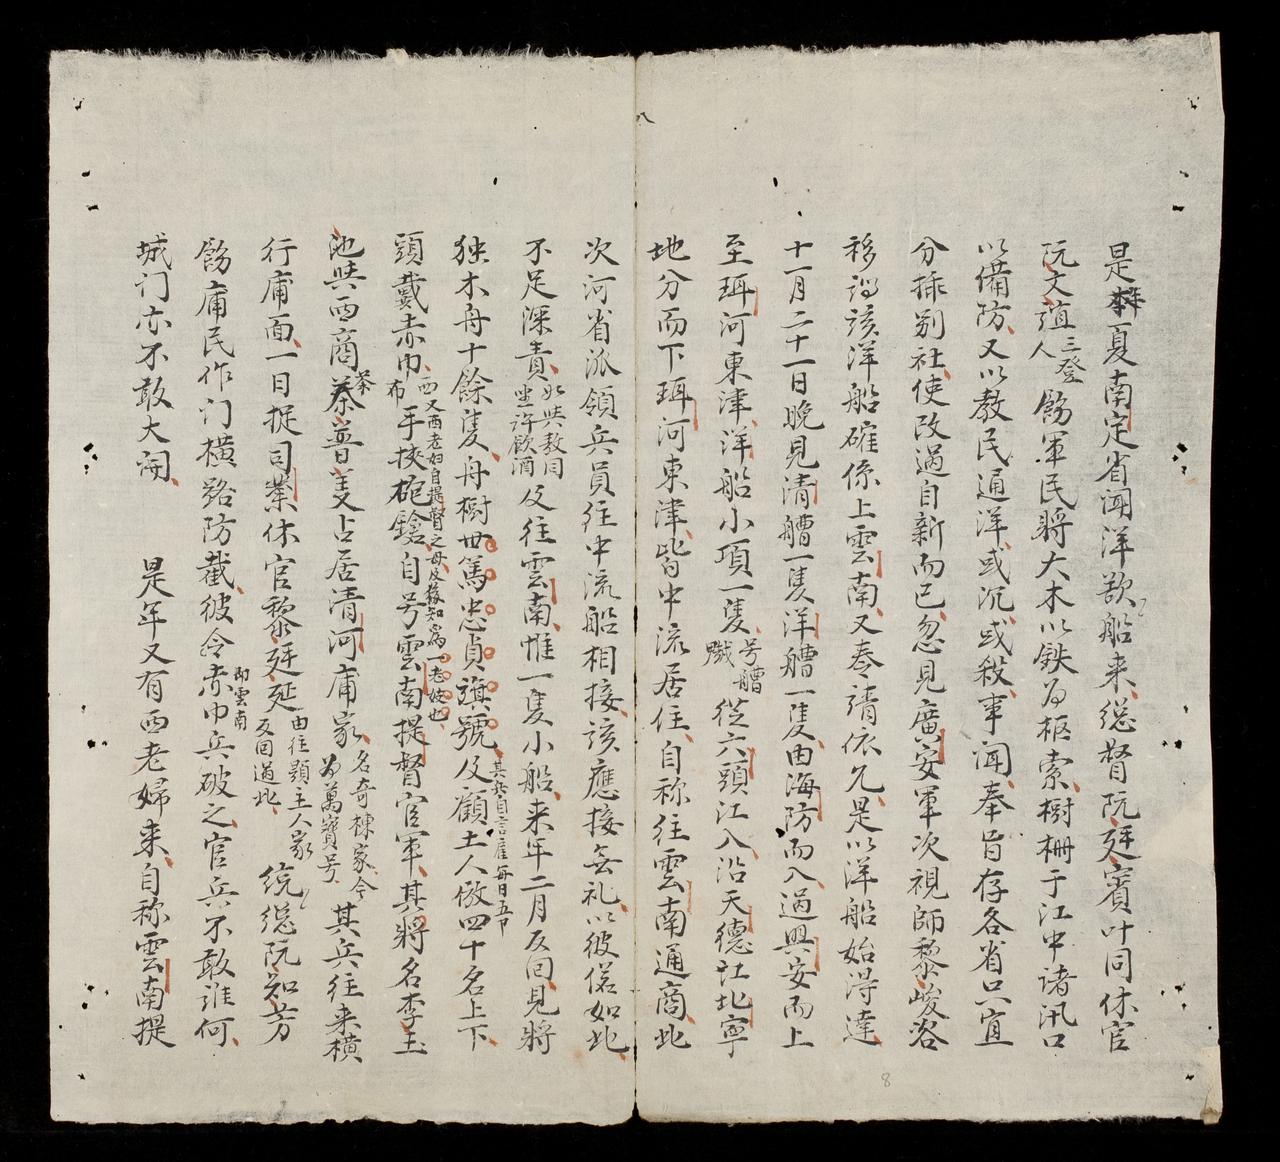 八
是年夏南定省闻洋歆船来总督阮廷賓叶同休官
阮文誼三登人飭軍民將大木以鉄为柜索樹柵于江中诸汛口
以備防又以教民通洋或沉或殺事闻奉旨存各省只宜
分插别社使改過自新而已忽見廣安軍次視師黎峻咨
移詞該洋船確係上雲南又奏请依允是以洋船始淂達
十一月二十一日晚見清艚一隻洋艚一隻由海防而入過興安而上
至珥河東津洋船小項一隻号艚从六頭江入沿天德社北寧
地分而下珥河東津皆中流居住自称往雲南通商此
次河省派領兵員往中流船相接該應接無礼以彼偌如此
不足深責如與教同坐許飲酒及往雲南惟一隻小船来年二月反回見將
独木舟十餘隻舟樹世篤忠貞旗號其兵自言雇每日五卩及顧土人倣四十名上下
頭戴赤巾西布又西老妇自提督之母及探知為一老妓也手挾砲鎗自号雲南提督官軍其將名李玉
池與西商荼普義占居清河庸家名奇棟家今为萬寶号其兵往来横
行庸面一日捉司業休官黎廷延由往题主人家反回過此统总阮知芳
飭庸民作门横路防截彼令赤巾兵即雲南破之官兵不敢谁何
城门亦不敢大闹　是年又有西老婦来自称雲南提
8